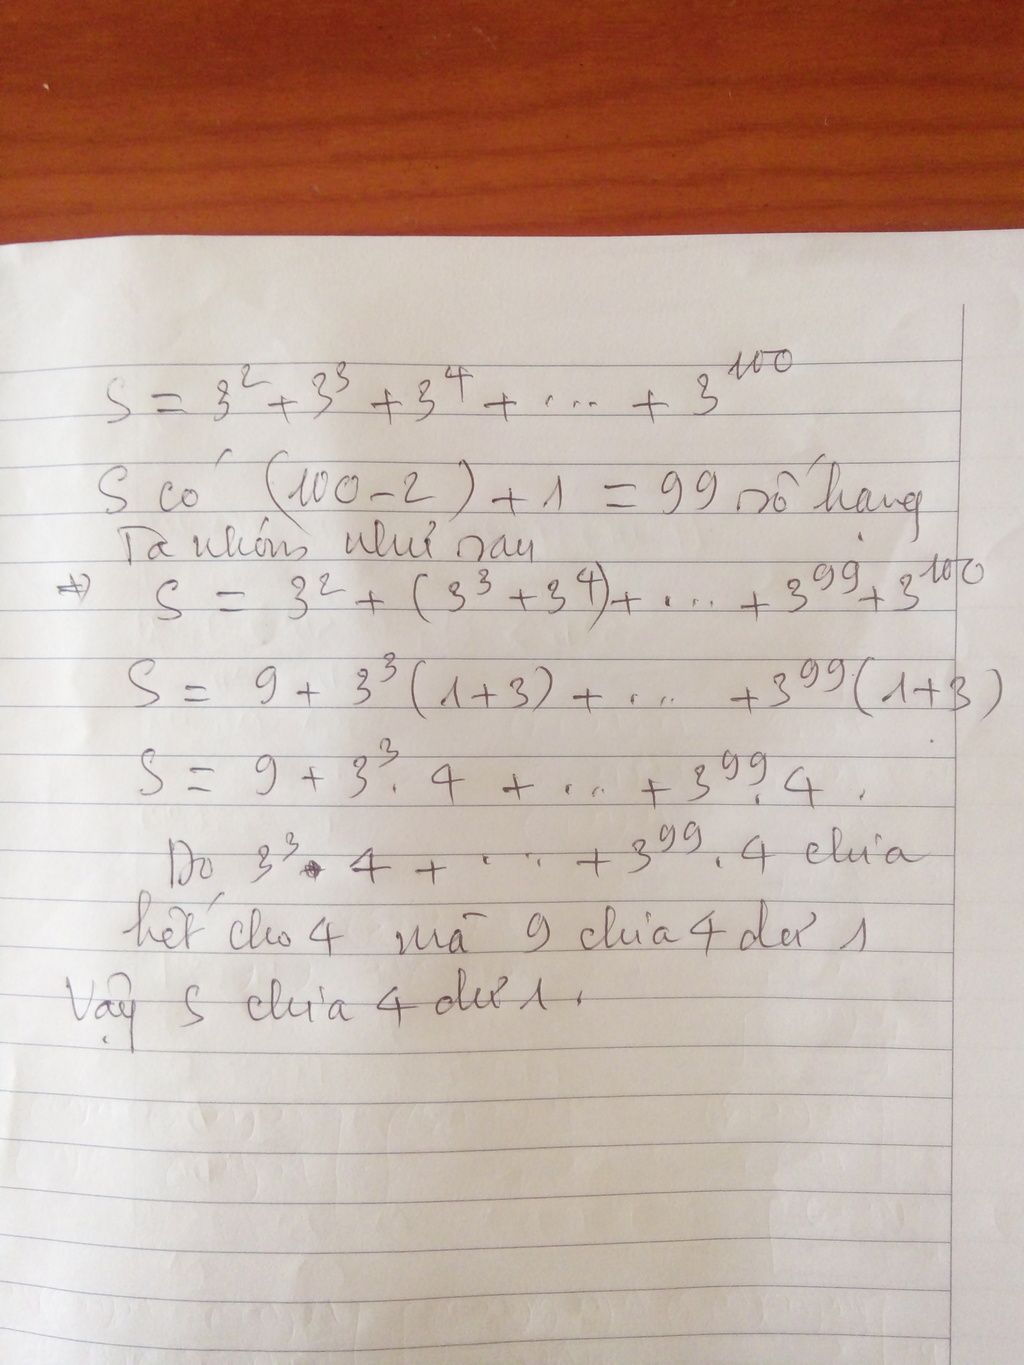 S = 3² + 3³ + 3⁴ + ... + 3¹⁰⁰
S có (100-2) + 1 = 99 số hạng
Ta nhóm như sau
=> S = 3² + (3³ + 3⁴) + ... + 3⁹⁹ + 3¹⁰⁰
S = 9 + 3³(1+3) + ... + 3⁹⁹(1+3)
S = 9 + 3³.4 + ... + 3⁹⁹.4.
Do 3³.4 + ... + 3⁹⁹.4 chia
hết cho 4 mà 9 chia 4 dư 1
Vậy S chia 4 dư 1.